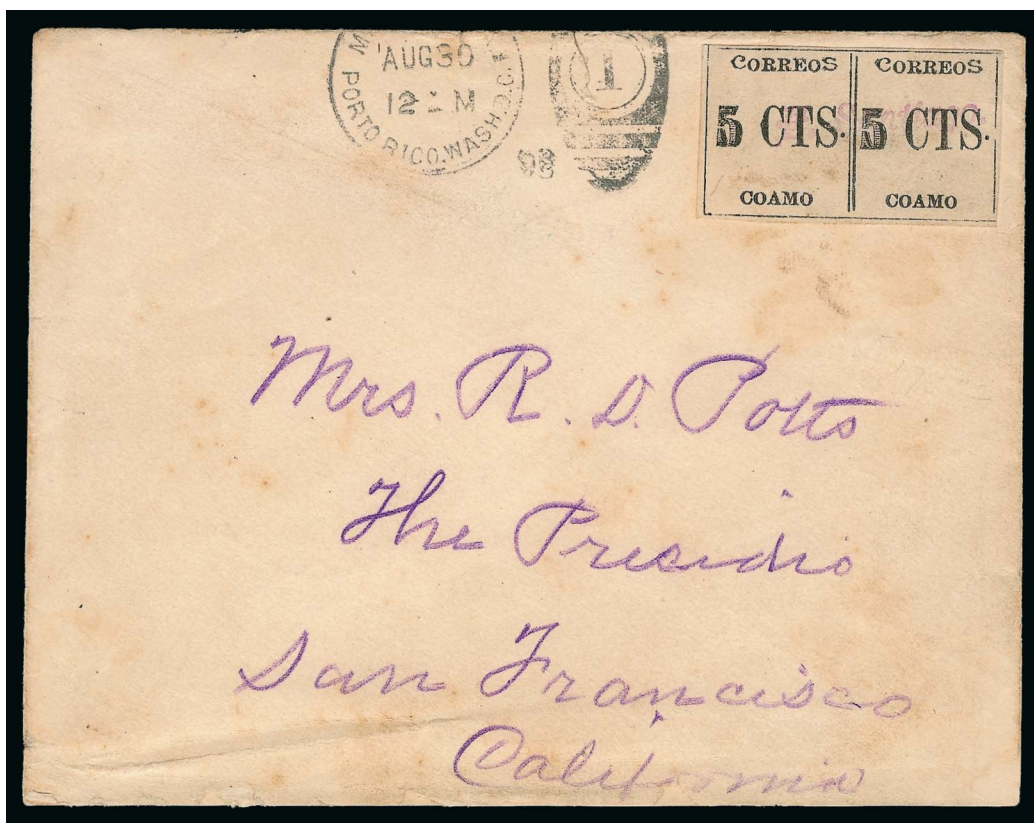 AUG 30
12 M
PORTO RICO. WASH. D.C.
98
1
CORREOS CORREOS
5 CTS. 5 CTS.
COAMO COAMO
Mrs. R. D. Potts
The Presidio
San Francisco
California